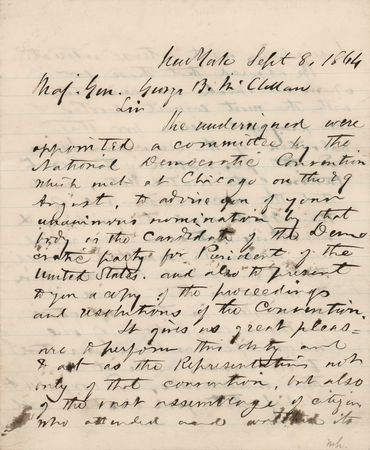 New York Sept 8, 1864
Maj. Gen. George B. McClellan
Sir
The undersigned were
appointed a committee by the
National Democratic Convention
which met at Chicago on the 29
August, to advise you of your
unanimous nomination by that
body as the candidate of the Demo
cratic party for President of the
United States. and also to present
to you a copy of the proceedings
and resolutions of the Convention.
It gives us great pleas-
ure to perform this duty and
to act as the Representatives not
only of that convention, but also
of the vast assemblage of citizens
who attended and its